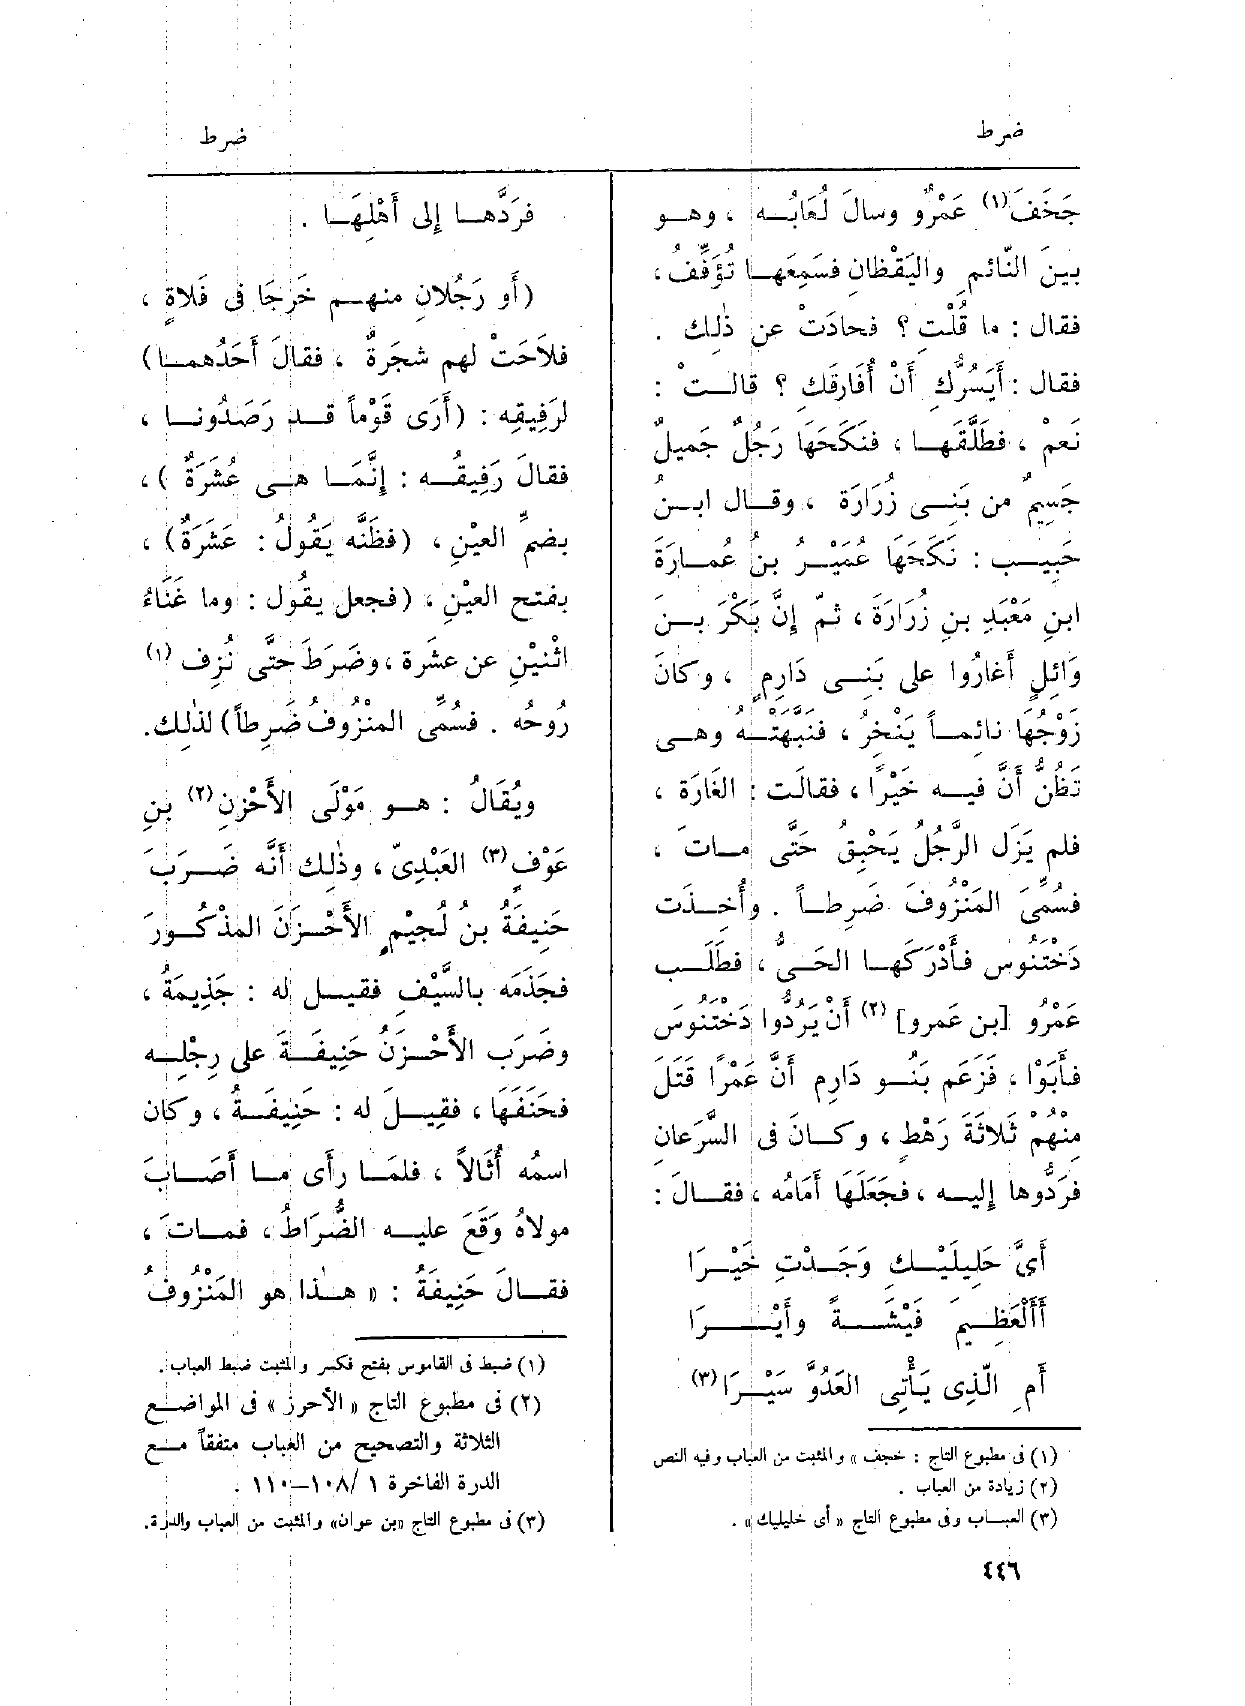 ضرط
ضرط
جَخَفَ(١) عَمْرٌو وسالَ لُعَابُــه ، وهــو
بينَ النّائمِ واليَقْظانِ فسَمِعَهــا تُؤَفِّفُ ،
فقال : ما قُلْت ؟ فحادَتْ عن ذٰلك .
فقال : أَيَسُرُّك أَنْ أُفَارِقَك ؟ قالــتْ :
نَعم ، فطَلَّقَهــا ، فنَكَحَهَا رَجُلٌ جَميلٌ
جَسِيمٌ من بَنِــى زُرَارَة ، وقــال ابــنُ
حَبِيــب : نَكَحَهَا عُمَيْــرُ بنُ عُمــارَةَ
ابنِ مَعْبَدِ بنِ زُرَارَةَ ، ثمّ إِنَّ بَكْرَ بــنَ
وَائِلٍ أَغارُوا على بَنِــى دَارِمٍ ، وكانَ
زَوْجُهَا نائمــاً يَنْخِرُ ، فنَبَّهَتْــهُ وهــى
تَظُنُّ أَنَّ فيــه خَيْرًا ، فقالَت : الغَارَة ،
فلم يَزَل الرَّجُلُ يَحْبِقُ حَتَّى مــاتَ ،
فسُمِّىَ المَنْزُوفَ ضَرِطــاً . وأُخِــذَت
دَخْتَنُوس فأَدْرَكَهــا الحَــىُّ ، فطَلَــب
عَمْرُو [بن عَمرو](٢) أَنْ يَرُدُّوا دَخْتَنُوسَ
فأَبَوْا ، فزَعَم بَنُــو دَارِم أَنَّ عَمْرًا قَتَلَ
مِنْهُم ثَلاثَةَ رَهْطٍ ، وكــانَ فى السَّرَعانِ
فرَدُّوها إِليــه ، فجَعَلَهَا أَمَامَه ، فقــالَ :
أَىَّ حَلِيلَيْــكِ وَجَــدْتِ خَيْــرَا
أَأَلْعَظِيــمَ فَيْشَــةً وأَيْــرَا
أَمِ الَّذِى يَأْتِى العَدُوَّ سَيْــرَا(٣)
(١) فى مطبوع التاج : خجف » والمثبت من العباب وفيه النص
(٢) زيادة من العباب .
(٣) العبــاب وفى مطبوع التاج « أى خليليك » .
٤٤٦
فرَدَّهــا إِلى أَهْلِهَــا .
(أَو رَجُلانِ منهــم خَرَجَا فى فَلاةٍ ،
فلاَحَتْ لهم شجَرَةٌ ، فقالَ أَحَدُهمــا)
لرَفِيقِه : (أَرَى قَوْماً قــد رَصَدُونــا ،
فقالَ رَفِيقُــه : إِنَّمَــا هــى عُشَرَةٌ ) ،
بضمِّ العيْنِ ، (فظَنَّه يَقُولُ : عَشَرَةٌ) ،
بفتح العيْنِ ، (فجعل يقُول : وما غَنَاءُ
اثْنيْنِ عن عشَرة ، وضَرَطَ حتَّى نُزِف(١)
رُوحُه . فسُمِّى المنْزُوفُ ضَرِطاً) لذٰلِك.
ويُقَالُ : هــو مَوْلَى الأَحْزنِ(٢) بنِ
عَوْفٍ(٣) العَبْدِىّ ، وذٰلِك أَنَّه ضَــرَبَ
حَنِيفَةُ بنُ لُجيْمٍ الأَحْــزَنَ المذْكُــورَ
فجَذَمَه بالسَّيْفِ فقيــل له : جَذِيمَةُ ،
وضَرَب الأَحْــزنُ حَنِيفَــةَ على رِجْلِــه
فحَنَفَها ، فقِيــلَ له : حَنِيفَــةُ ، وكان
اسمُه أُثَالاً ، فلمَّــا رأَى مــا أَصَــابَ
مولاهُ وَقَعَ عليــه الضُّرَاطُ ، فمــاتَ ،
فقــالَ حَنِيفَةُ : « هــٰذا هو المَنْزُوفُ
(١) ضبط فى القاموس بفتح فكسر والمثبت ضبط العباب .
(٢) فى مطبوع التاج « الأحرز » فى المواضــع
الثلاثة والتصحيح من العباب متفقاً مــع
الدرة الفاخرة ١ /١٠٨—١١٠ .
(٣) فى مطبوع التاج «بن عوان» والمثبت من العباب والدرة.